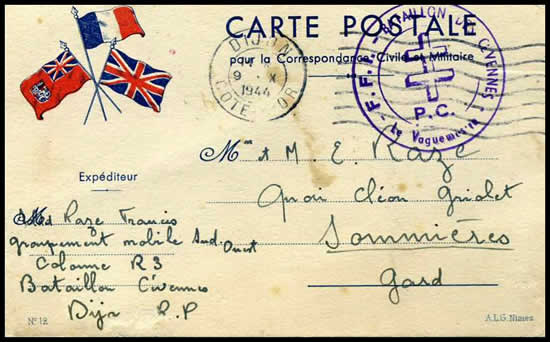 CARTE POSTALE
pour la Correspondance Civile et Militaire
DIJON
9 X
1944
COTE D'OR
F.F.I. BATAILLON DE CEVENNES
P.C.
Le Vaguemestre
Mr et M. E. Raze
Quai Cléon Griolet
Sommières
Gard
Expéditeur
Raze Francis
groupement mobile Sud-Ouest
Colonne R3
Bataillon Cévennes
Dijon R.P
N° 12
A.L.G. Nimes